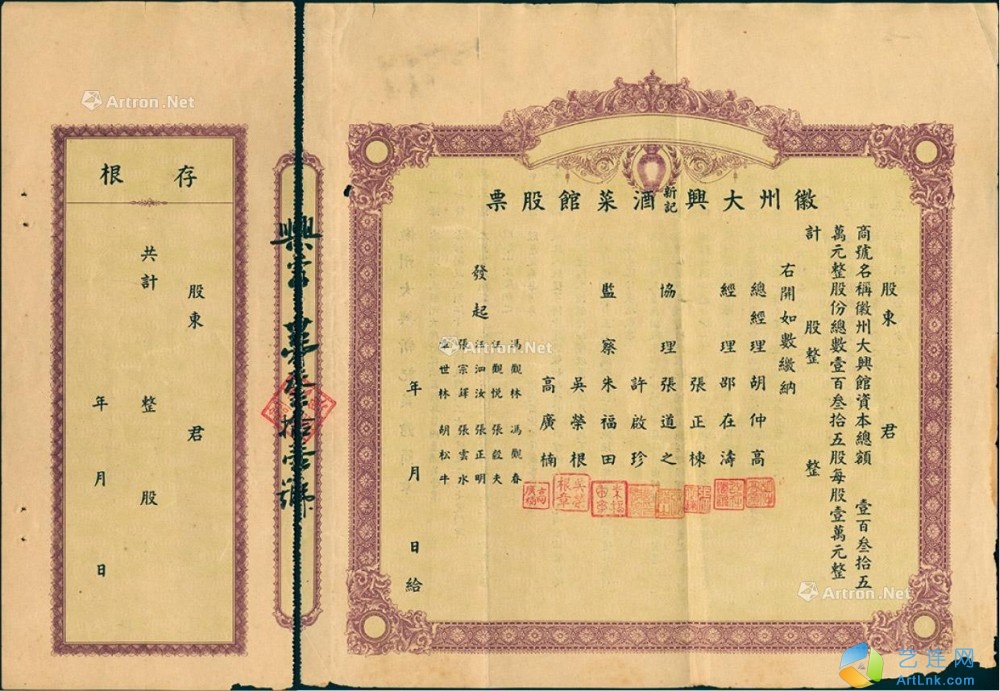 徽州大興新記酒菜館股票
股東 君
商號名稱徽州大興館資本總額 壹百叁拾五
萬元整股份總數壹百叁拾五股每股壹萬元整
計 股整 整
右開如數繳納
總經理 胡仲高
經理 邵在濤
張正棟
協理 張道之
許啟珍
監察 朱福田
吳榮根
高廣楠
發起
馮觀林 馮觀春
汪觀悦 張毅夫
汪泗汝 張正明
張宗鐸 張雲水
世林 胡松牛
年 月 日給
興字第叁拾壹號
存根
股東 君
共計 整 股
年 月 日
Artron.Net
Artron.Net
Artron.Net
Artron.Net
艺连网
ArtLnk.com